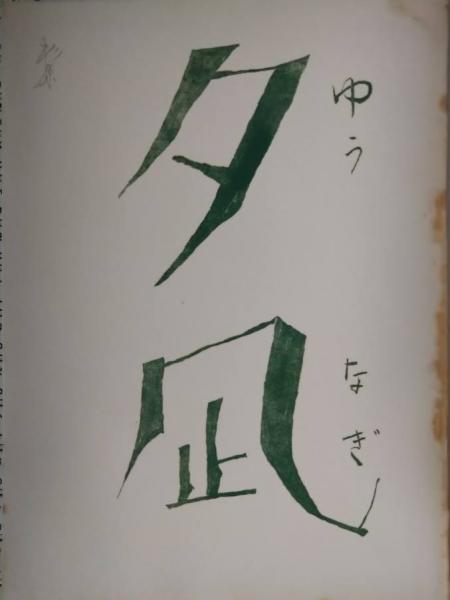 夕凪
ゆうなぎ